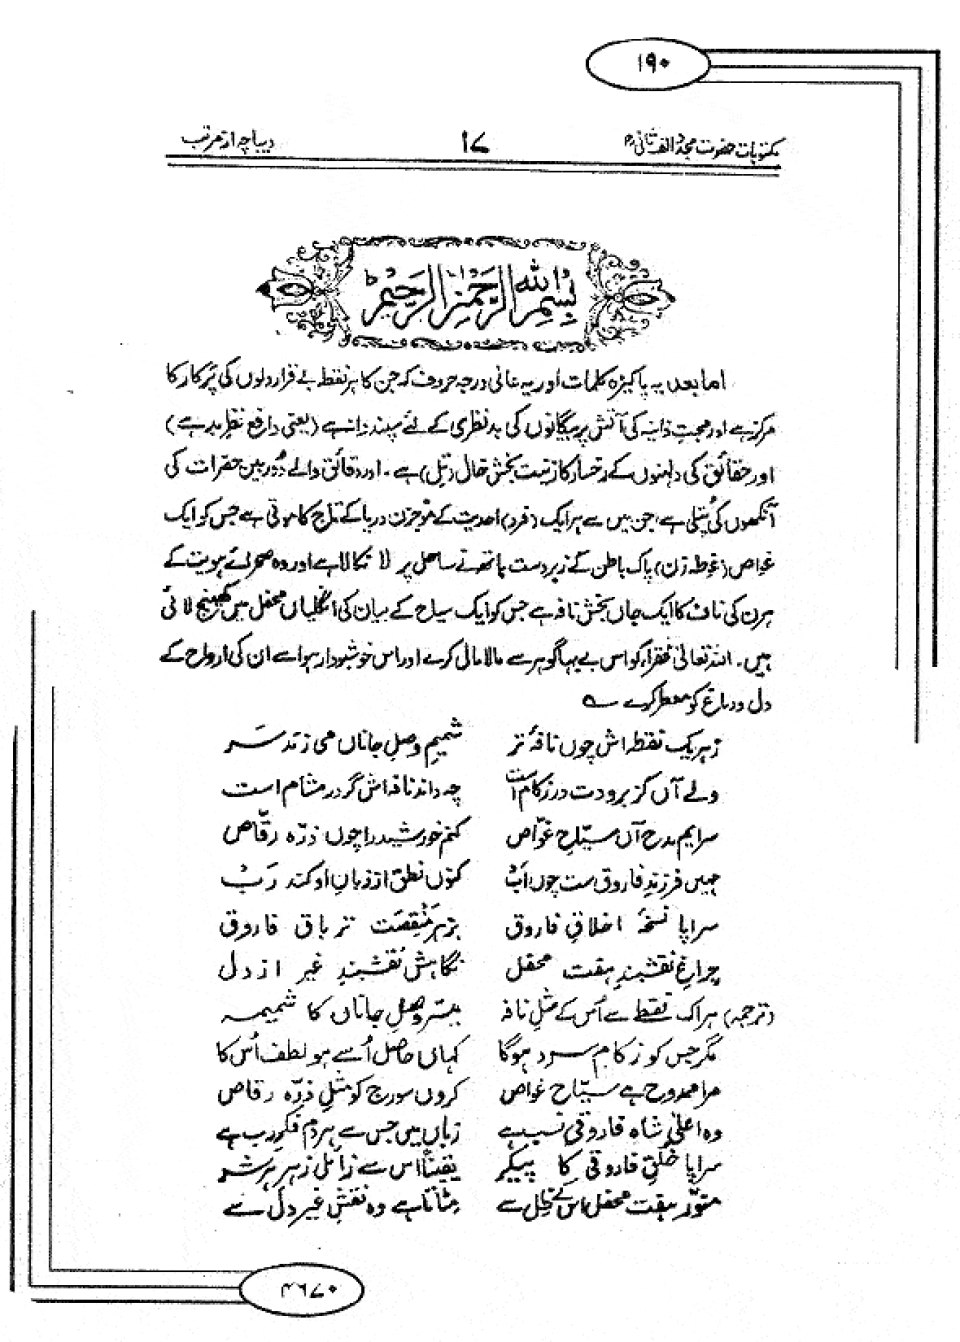 ۱۹۰
مکتوبات حضرت مجدد الف ثانیؒ ۱۷ دیباچہ از مرتب
بسم الله الرحمن الرحيم
اما بعد یہ پاکیزہ کلمات اور یہ عالی درجہ حروف کہ جن کا ہر نقطہ بے قرار دلوں کی پرکار کا
مرکز ہے اور محبتِ ذاتیہ کی آتش پر بیگانوں کی بد نظری کے لئے سپند دانہ ہے (یعنی دافع نظرِ بد ہے)
اور حقائق کی دلہنوں کے رخسار کا زینت بخش خال (تِل) ہے۔ اور دقائق والے دُور بین حضرات کی
آنکھوں کی پُتلی ہے جن میں سے ہر ایک (فرد) احدیت کے موجزن دریا کے تاج کا موتی ہے جس کو ایک
غواص (غوطہ زن) پاک باطن کے زبردست ہاتھ نے ساحل پر لا نکالا ہے اور وہ صحرائے ہویت کے
ہرن کی ناف کا ایک جاں بخش نافہ ہے جس کو ایک سیاح کے بیان کی انگلیاں محفل میں کھینچ لائی
ہیں۔ اللہ تعالیٰ فقراء کو اس بے بہا گوہر سے مالا مال کرے اور اس خوشبودار ہوا سے ان کی ارواح کے
دل و دماغ کو معطر کرے ؎
زہر یک نقطہ اش چوں نافۂ تر شمیمِ وصلِ جاناں می زند سر
ولے آں کز برودت در زکام است چہ داند نافہ اش گر در مشام است
سرایم مدح آں سیّاحِ غوّاص کنم خورشید را چوں ذرّہ رقّاص
ہمیں فرزندِ فاروق است چوں اَبْ کنوں نطق از زبانِ او کند رَبْ
سراپا نسخۂ اخلاقِ فاروق بزہرِ مَنْقِصَت تریاق فاروق
چراغِ نقشبندِ ہفت محفل نگاہش نقشبندِ غیر از دل
(ترجمہ) ہر اک نقطے سے اُس کے مثلِ نافہ میسّر وصلِ جاناں کا شمیمہ
مگر جس کو زکامِ سرد ہوگا کہاں حاصل اُسے ہو لطف اُس کا
مرا ممدوح ہے سیّاح غواص کروں سورج کو مثلِ ذرّہ رقاص
وہ اعلیٰ شاہ فاروقی نسب ہے زباں میں جس سے ہر دم فکرِ رب ہے
سراپا خُلقِ فاروقی کا پیکر یقیناً اس سے زائل زہر ہر شر
منوّر ہفت محفل اس کے دل سے مٹاتا ہے وہ نقشِ غیر دل سے
۴۶۷۰